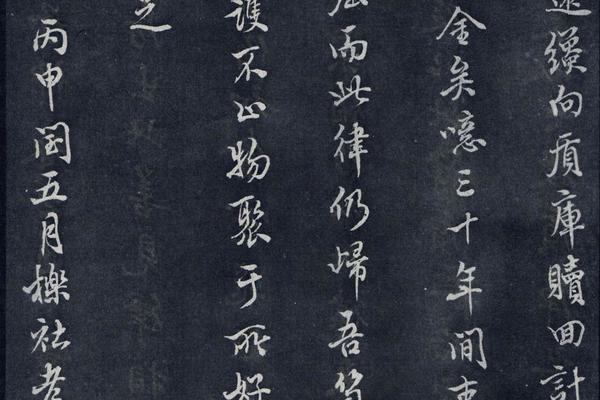 纔向質庫贖回計
金矣噫三十年間
而此律仍歸吾
護不止物聚于所好
之
丙申閏五月櫟社老